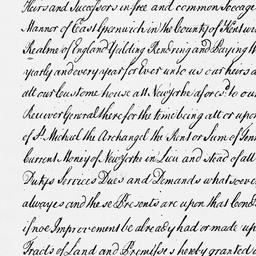 Heirs and Successors in free and common Socage
Mannor of East Greenwich in the County of Kent w
Realme of England Yielding Rendring and Paying
yearly and every year for Ever unto us our heirs a
att our Custome house att New Yorke aforesd. to our
Receiver General there for the time being att or upon
of St. Michael the Archangel the Rent or Sum of
Current Money of New Yorke in Lieu and Stead of all
Dutys Services Dues and Demands whatsoever
always and these Presents are upon that Cond
if no Improvement be already had or made up
Tracts of Land and Premisses hereby granted